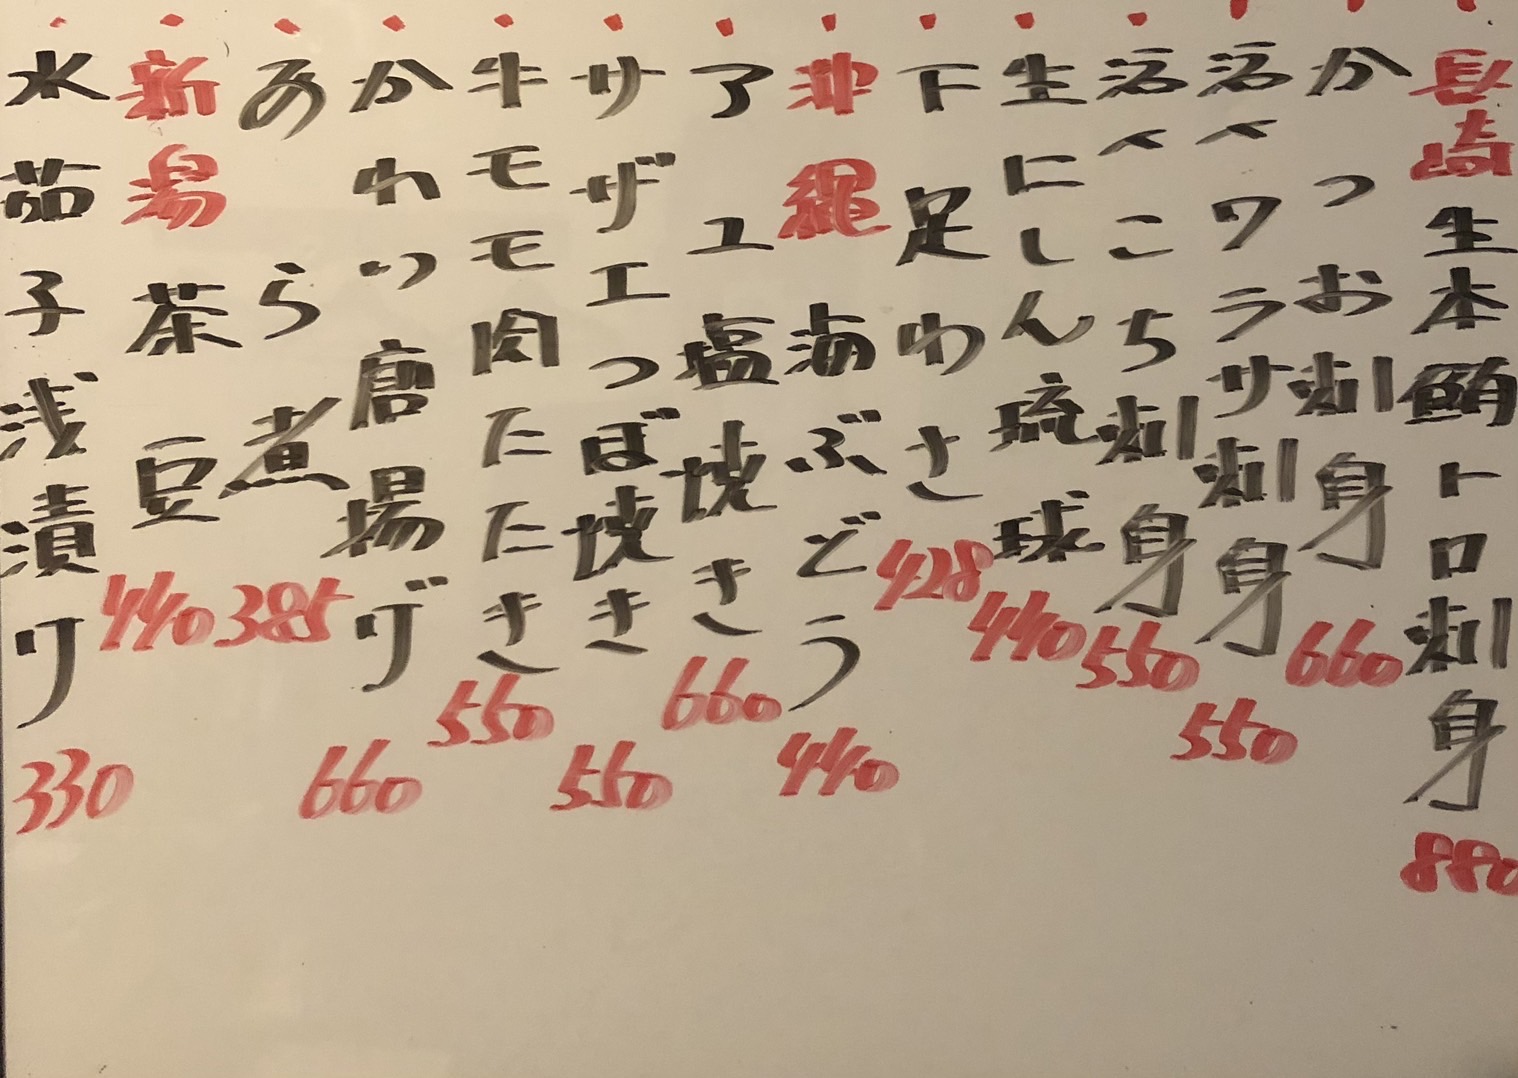 長崎生本鮪トロ刺身 880
かつお刺身 660
活〆ワラサ刺身 550
活〆こち刺身 550
生にしん琉球 440
下足わさ 428
沖縄海ぶどう 440
アユ塩焼き 660
サザエつぼ焼き 550
牛モモ肉たたき 550
かわづ唐揚ゲ 660
あら煮 385
新潟茶豆 440
水茄子浅漬ケ 330